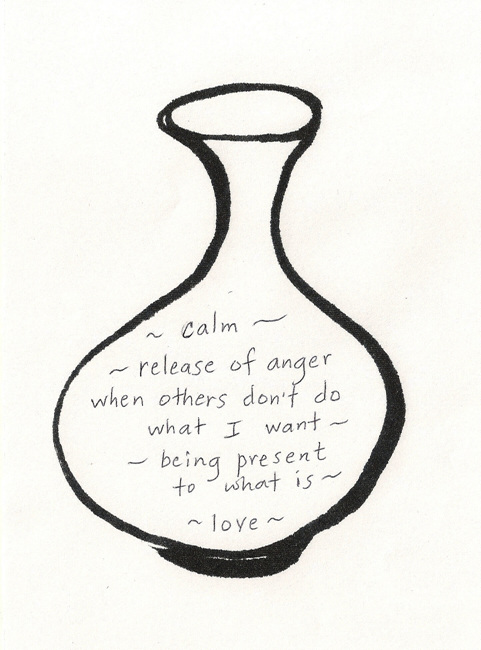 ~ calm ~
~ release of anger
when others don't do
what I want ~
~ being present
to what is ~
~ love ~